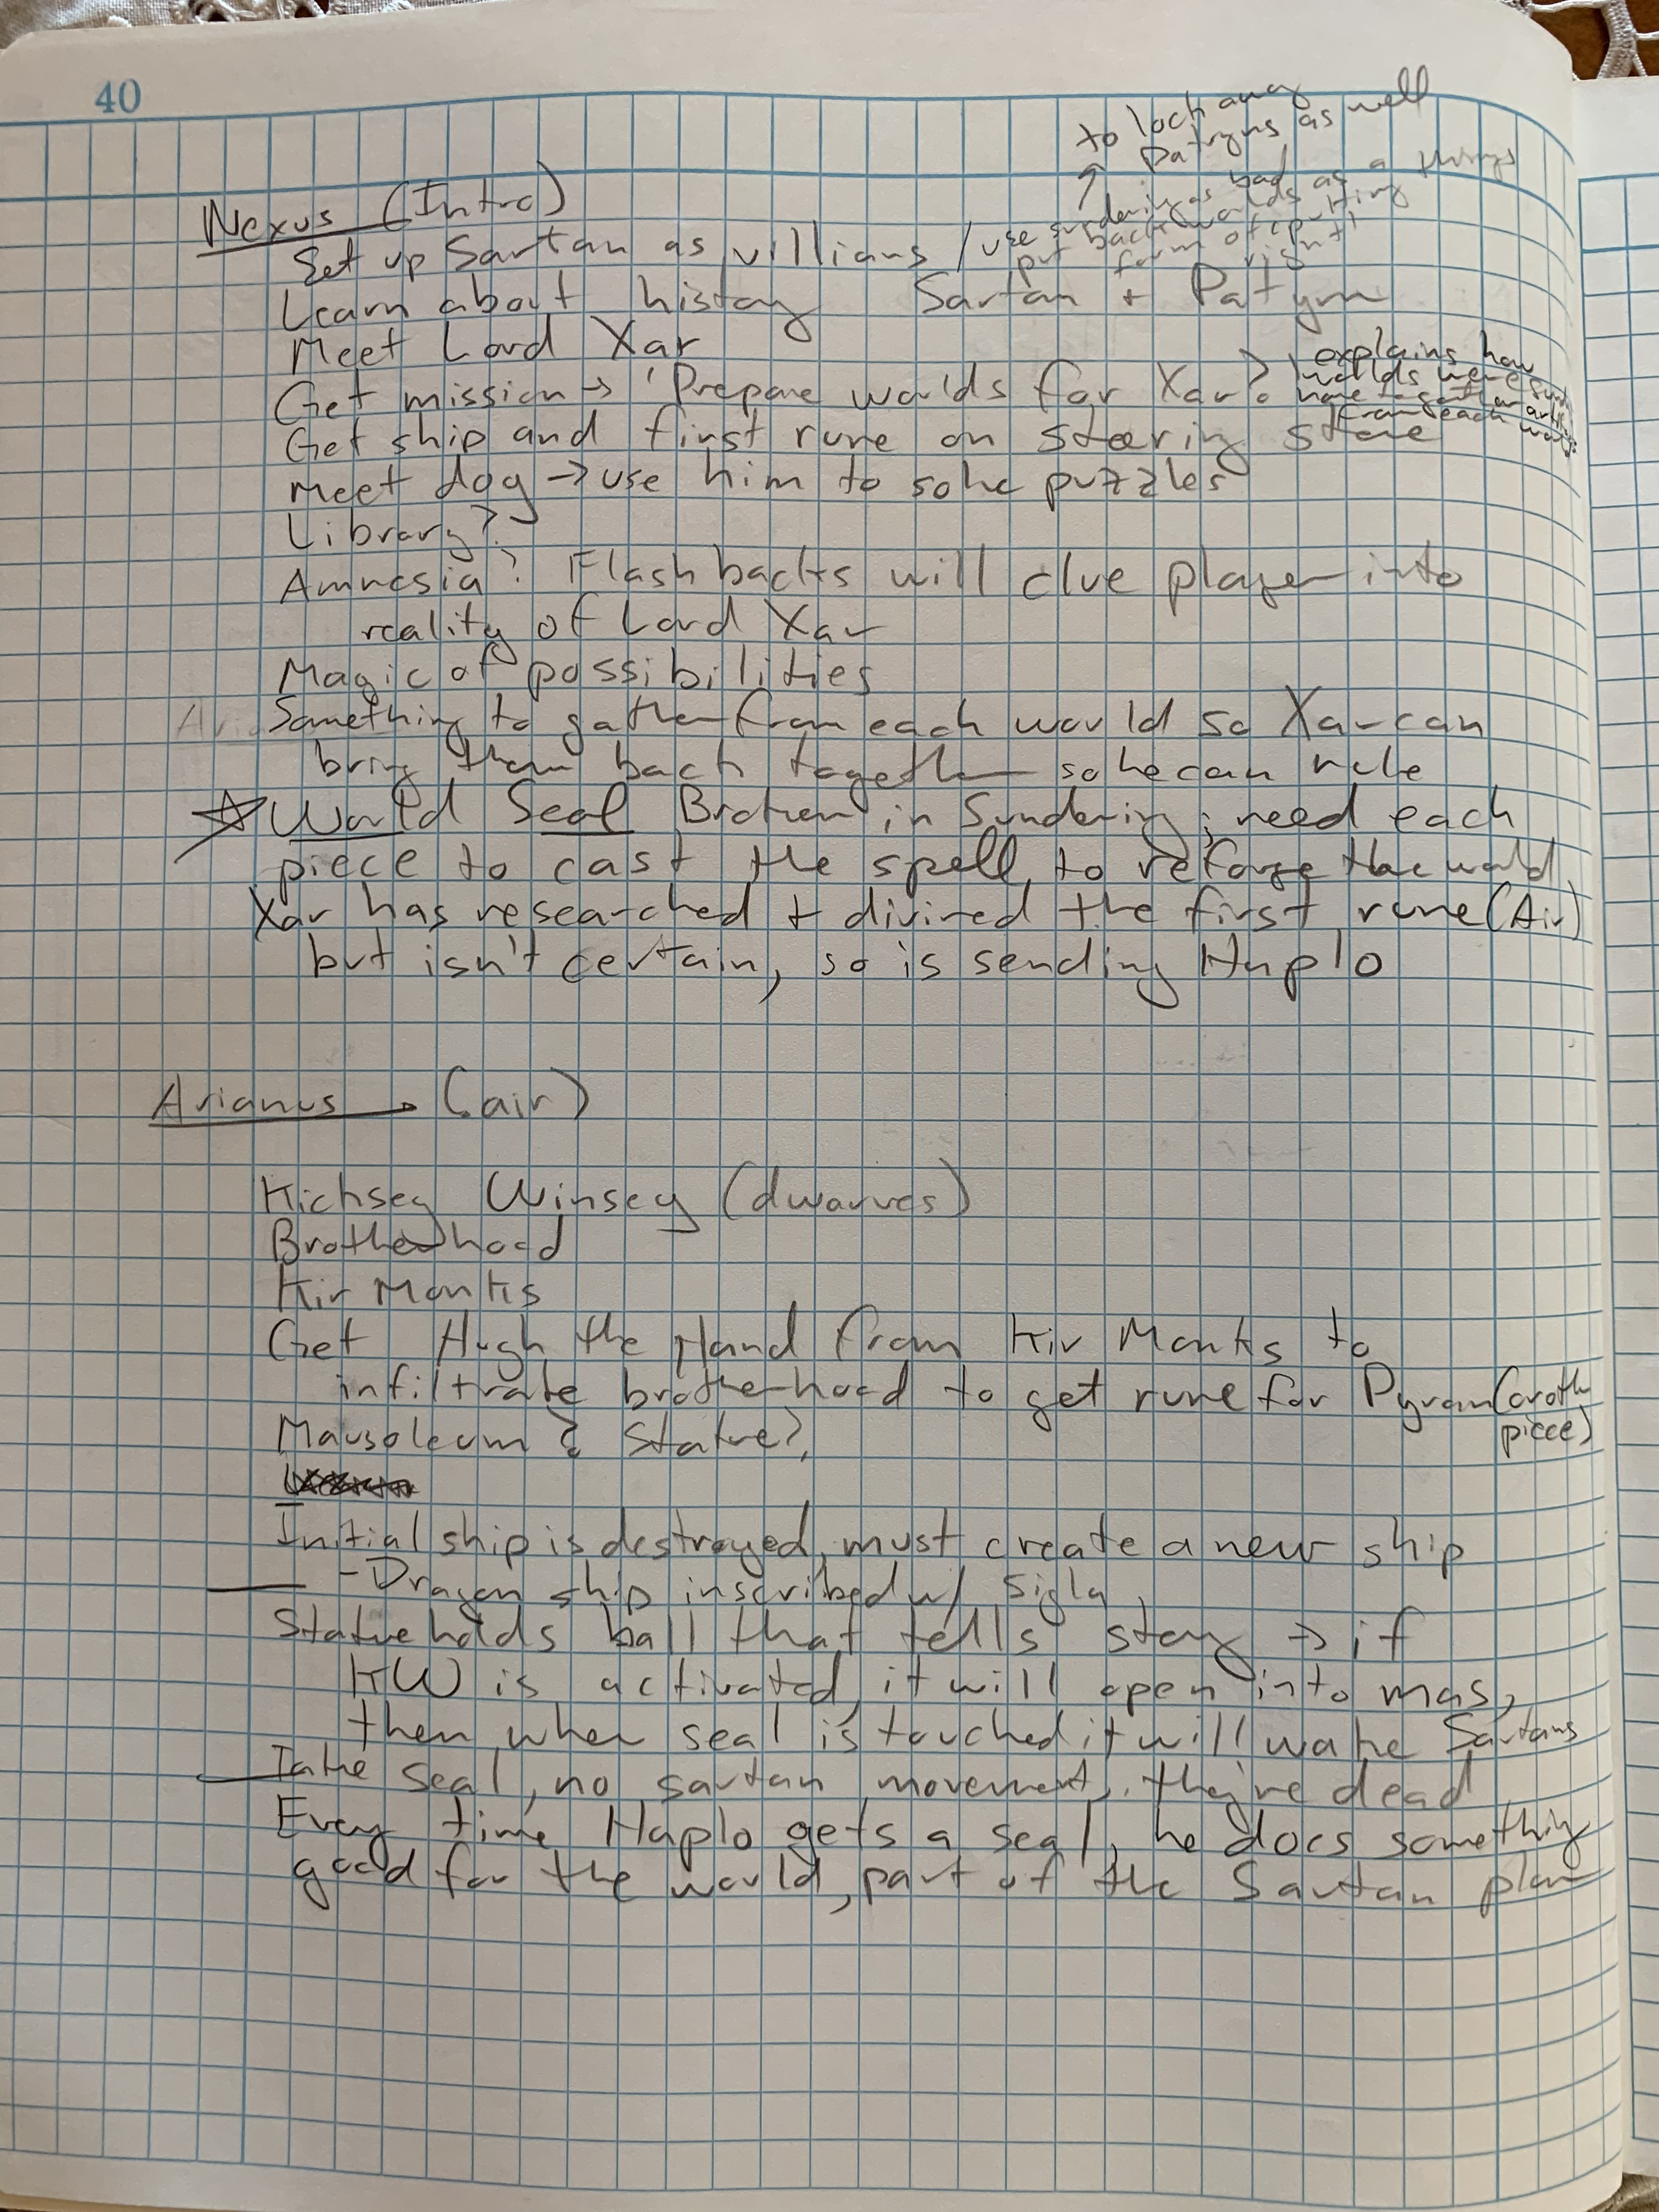 40
to lock away
patryns as well
Nexus (Intro)
Set up Sartan as villians / use sundering as bad
put back worlds as a
form of putting things
right!
Learn about history Sartan + Patyrn
Meet Lord Xar
Get mission → 'Prepare worlds for Xar? explains how
worlds were
have to gather
from each world
Get ship and first rune on steering stone
Meet dog → use him to solve puzzles
Library?
Amnesia? Flashbacks will clue player into
reality of Lord Xar
Magic of possibilities
Something to gather from each world so Xar can
bring them back together so he can rule
World Seal Broken in Sundering; need each
piece to cast the spell to reforge the world
Xar has researched + divined the first rune (Air)
but isn't certain, so is sending Haplo
Arianus → (air)
Kicksey Winsey (dwarves)
Brotherhood
Kir Monks
Get Hugh the Hand from Kir Monks to
infiltrate brotherhood to get rune for Pyran
piece)
Mausoleum & Statue?
Initial ship is destroyed, must create a new ship
- Dragon ship inscribed w/ sigla
Statue holds ball that tells story → if
KW is activated, it will open into mas,
then when seal is touched it will wake Sartans
Take seal, no sartan movement, they're dead
Every time Haplo gets a seal, he does something
good for the world, part of the Sartan plan